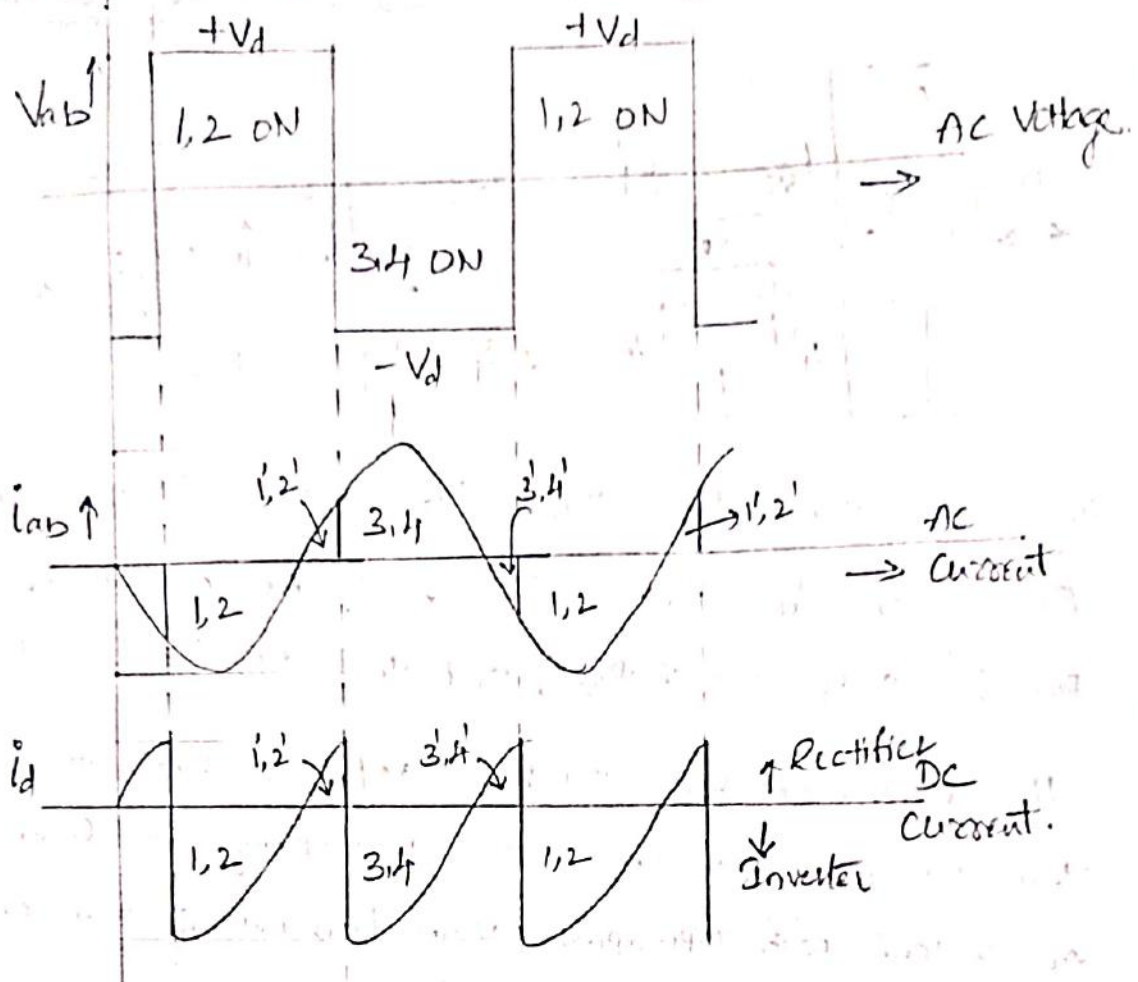 +Vd +Vd
Vab↑
1,2 ON 1,2 ON AC Voltage.
→
3,4 ON
-Vd
1',2' 3',4'
iab ↑ 3,4 1',2' AC
→ Current
1,2 1,2
id 1',2' 3',4' ↑ Rectifier
DC
Current.
1,2 3,4 1,2 ↓
Inverter